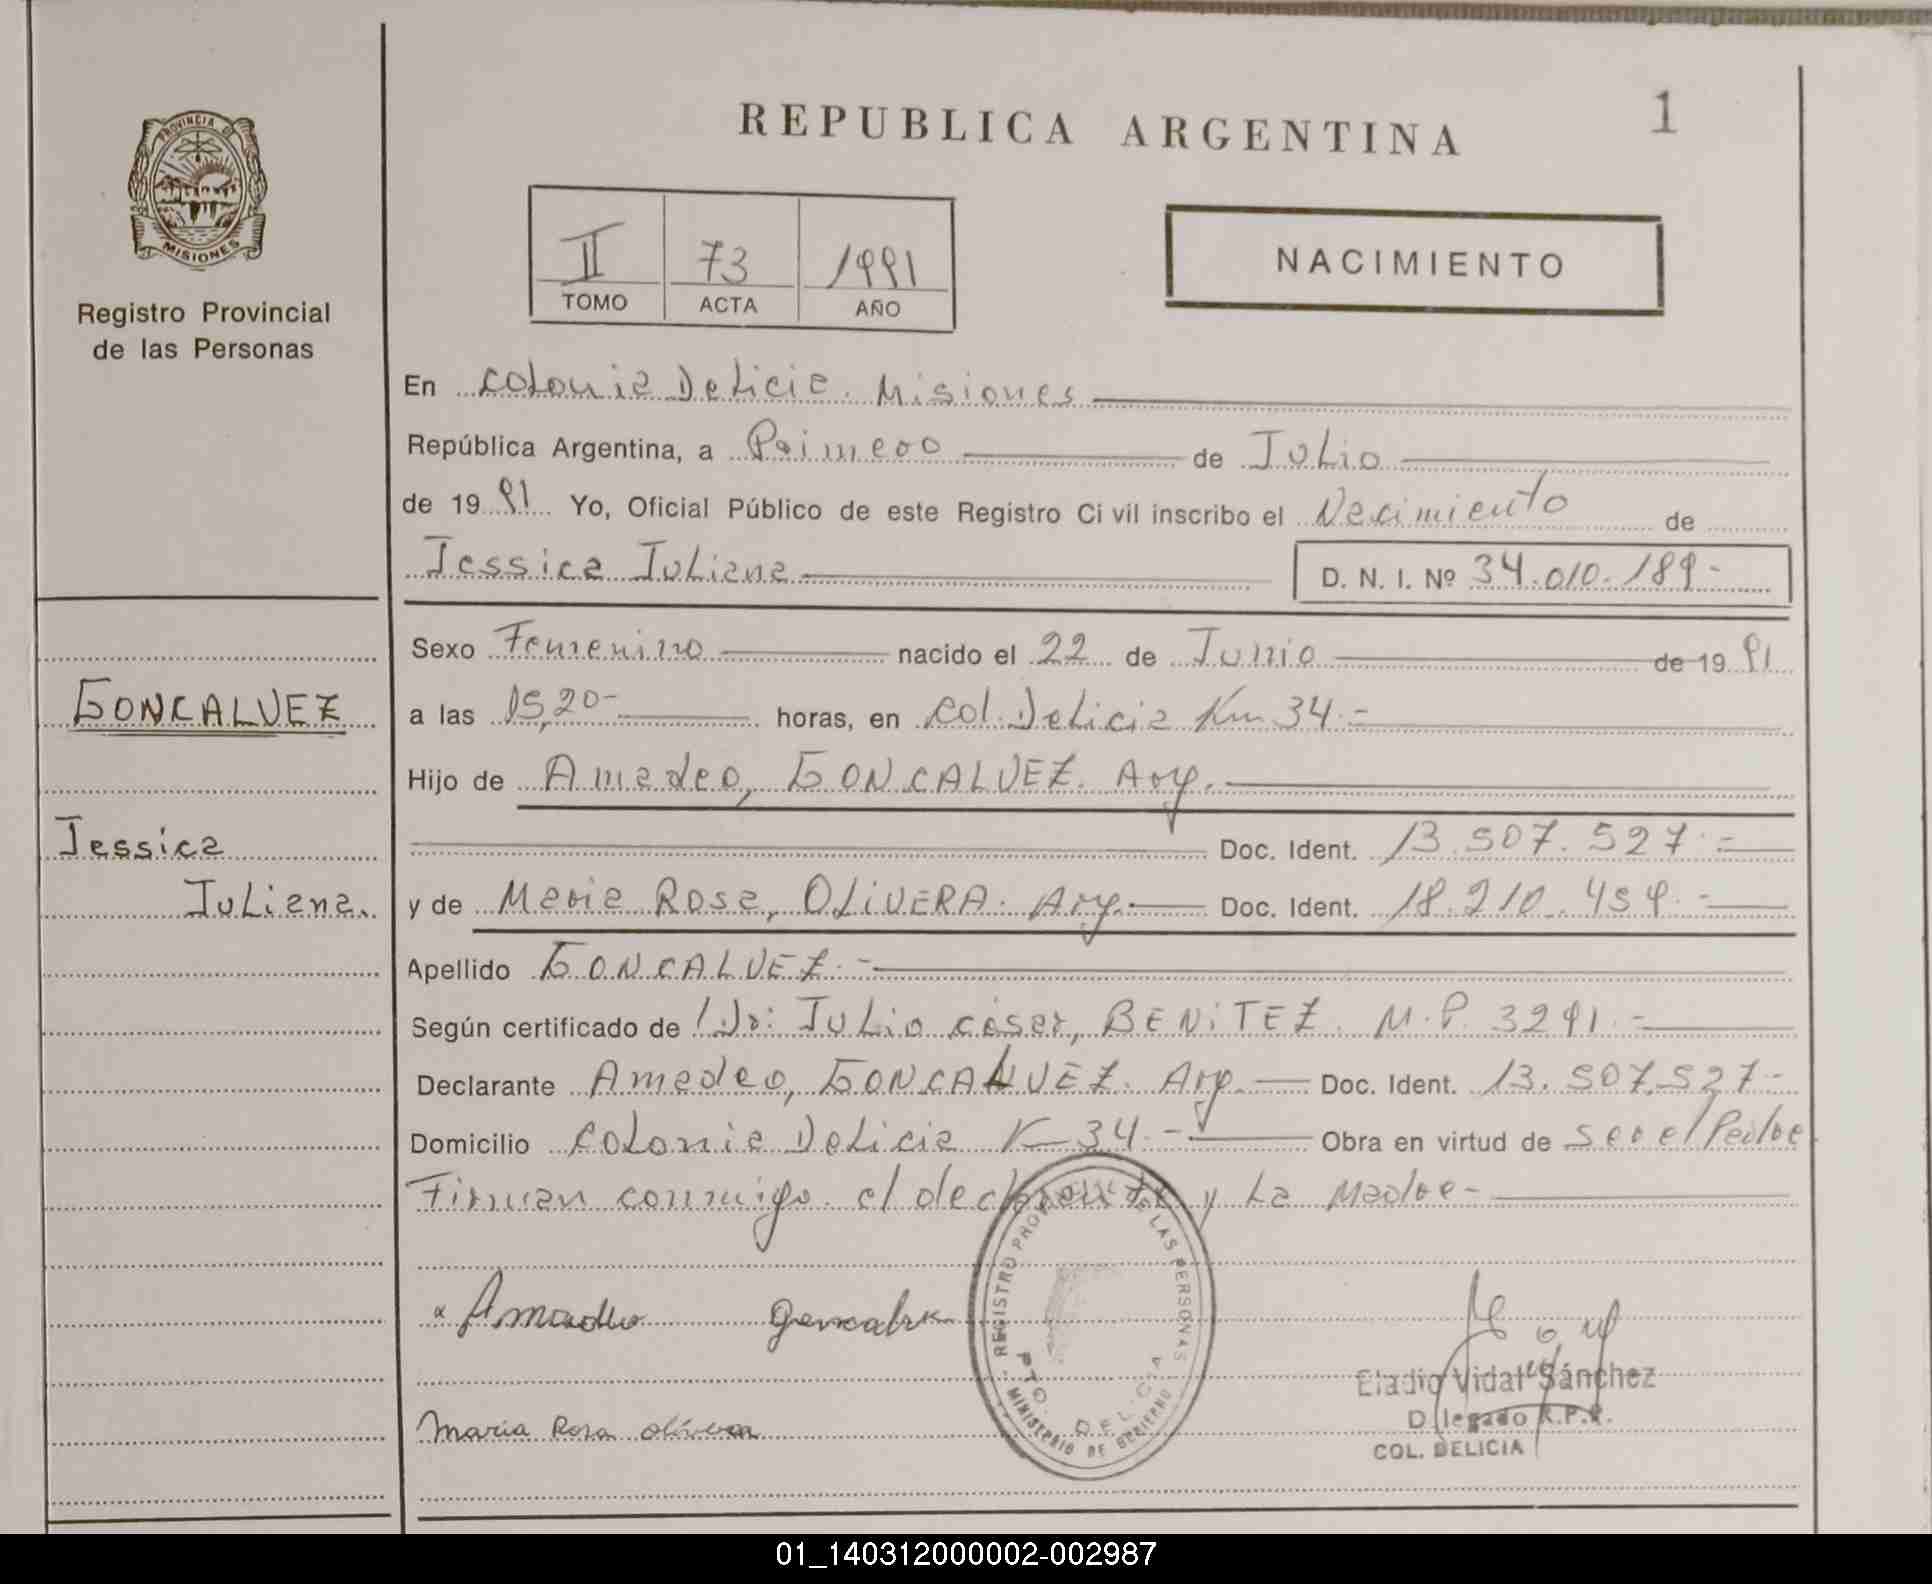 REPUBLICA ARGENTINA
1
PROVINCIA DE
MISIONES
Registro Provincial
de las Personas
II 73 1991
TOMO ACTA AÑO
NACIMIENTO
En Colonia Delicia. Misiones
República Argentina, a Primero de Julio
de 1991 Yo, Oficial Público de este Registro Civil inscribo el Nacimiento de
Jessica Juliana D. N. I. Nº 34.010.189-
Sexo Femenino nacido el 22 de Junio de 1991
a las 15,20- horas, en Col. Delicia Km 34.-
GONCALVEZ
Hijo de Amadeo, GONCALVEZ. Arg.
Doc. Ident. 13.507.527.-
Jessica
Juliana.
y de Maria Rosa, OLIVERA. Arg.- Doc. Ident. 18.210.459.-
Apellido GONCALVEZ.-
Según certificado de Dr: Julio César, BENITEZ. M.P. 3291.-
Declarante Amadeo, GONCALVEZ. Arg. Doc. Ident. 13.507.527-
Domicilio Colonia Delicia K 34.- Obra en virtud de ser el Padre
Firman conmigo el declarante y La Madre-
Amadeo Goncalvez
Maria Rosa Olivera
REGISTRO PROVINCIAL DE LAS PERSONAS
PTO. DELICIA
MINISTERIO DE GOBIERNO
Eladio Vidal Sánchez
Delegado R.P.P.
COL. DELICIA
01_140312000002-002987